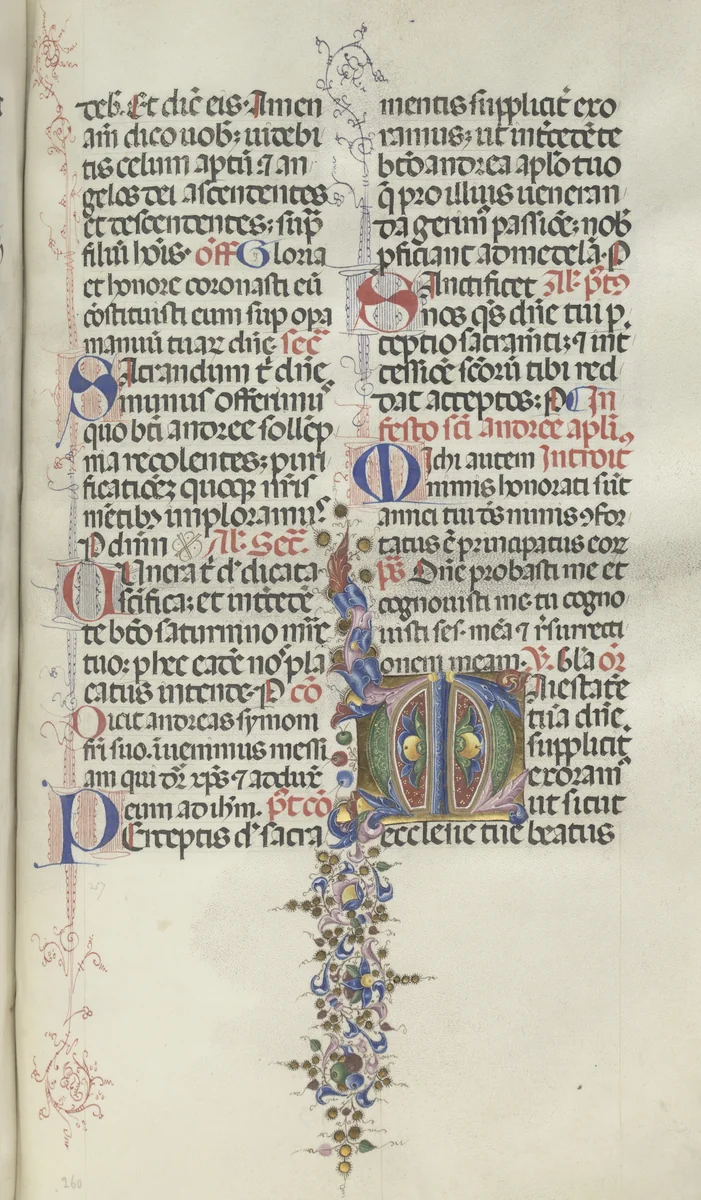 deb. Et dic̄ eis. Amen
am̄ dico uob; uidebi
tis celum aptū ⁊ an
gelos dei ascendentes
et descendentes; sup̄
filiū hōis. off̄ Gloria
et honore coronasti eū
cōstituisti eum sup opa
manuū tuaꝝ dn̄e. sec̄
Sacrandum t̄ dn̄e
munus offerimꝰ
quo bt̄i andree sollēp
nia recolentes; puri
ficatiōez quoqꝫ nr̄is
mētibꝫ imploramus.
P dn̄m Al. Sec̄.
Munera t̄ dn̄e dicata
sc̄ifica; et int̄cedēte
te bt̄o saturnino mr̄e
tuo: p hec eadē nos pla
catus intende. P cō
Dicit andreas symoni
fr̄i suo. īuenimus messi
am qui dr̄ xp̄s ⁊ adduxͭ
eum ad ih̄m. pͭ cō
Perceptis dn̄e sacra
mentis supplicit̄ exo
ramus; ut int̄cedēte
bt̄o andrea aplo tuo
q̄ pro illius ueneran
da gerimꝰ passiōe; nob̄
pficiant ad medelā. P
Sanctificet Al. pͭ cō
nos qs dn̄e tui p
ceptio sacramt̄i; ⁊ int̄
cessiōe scōrū tibi red
dat acceptos: P In
festo sc̄i andree apl̄i
Michi autem Introit
nimis honorati sūt
amici tui d̄s nimis ꝯfor
tatus ē principatus eoꝝ
ps̄ Dn̄e probasti me et
cognouisti me. tu cogno
uisti ses. meā ⁊ r̄surrecti
onem meam. V̄. Gl̄a or̄
Maiestatē
tuā dn̄e
supplicit̄
exoramꝰ
ut sicut
ecclesie tue beatus
260